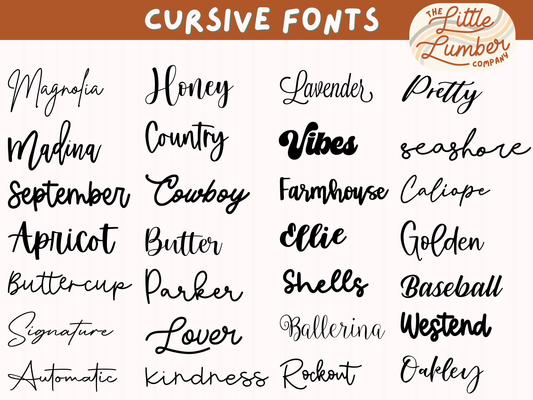 CURSIVE FONTS
THE
Little
Lumber
COMPANY
Magnolia Honey Lavender Pretty
Madina Country Vibes seashore
September Cowboy Farmhouse Caliope
Apricot Butter Ellie Golden
Buttercup Parker Shells Baseball
Signature Lover Ballerina Westend
Automatic kindness Rockout Oakley